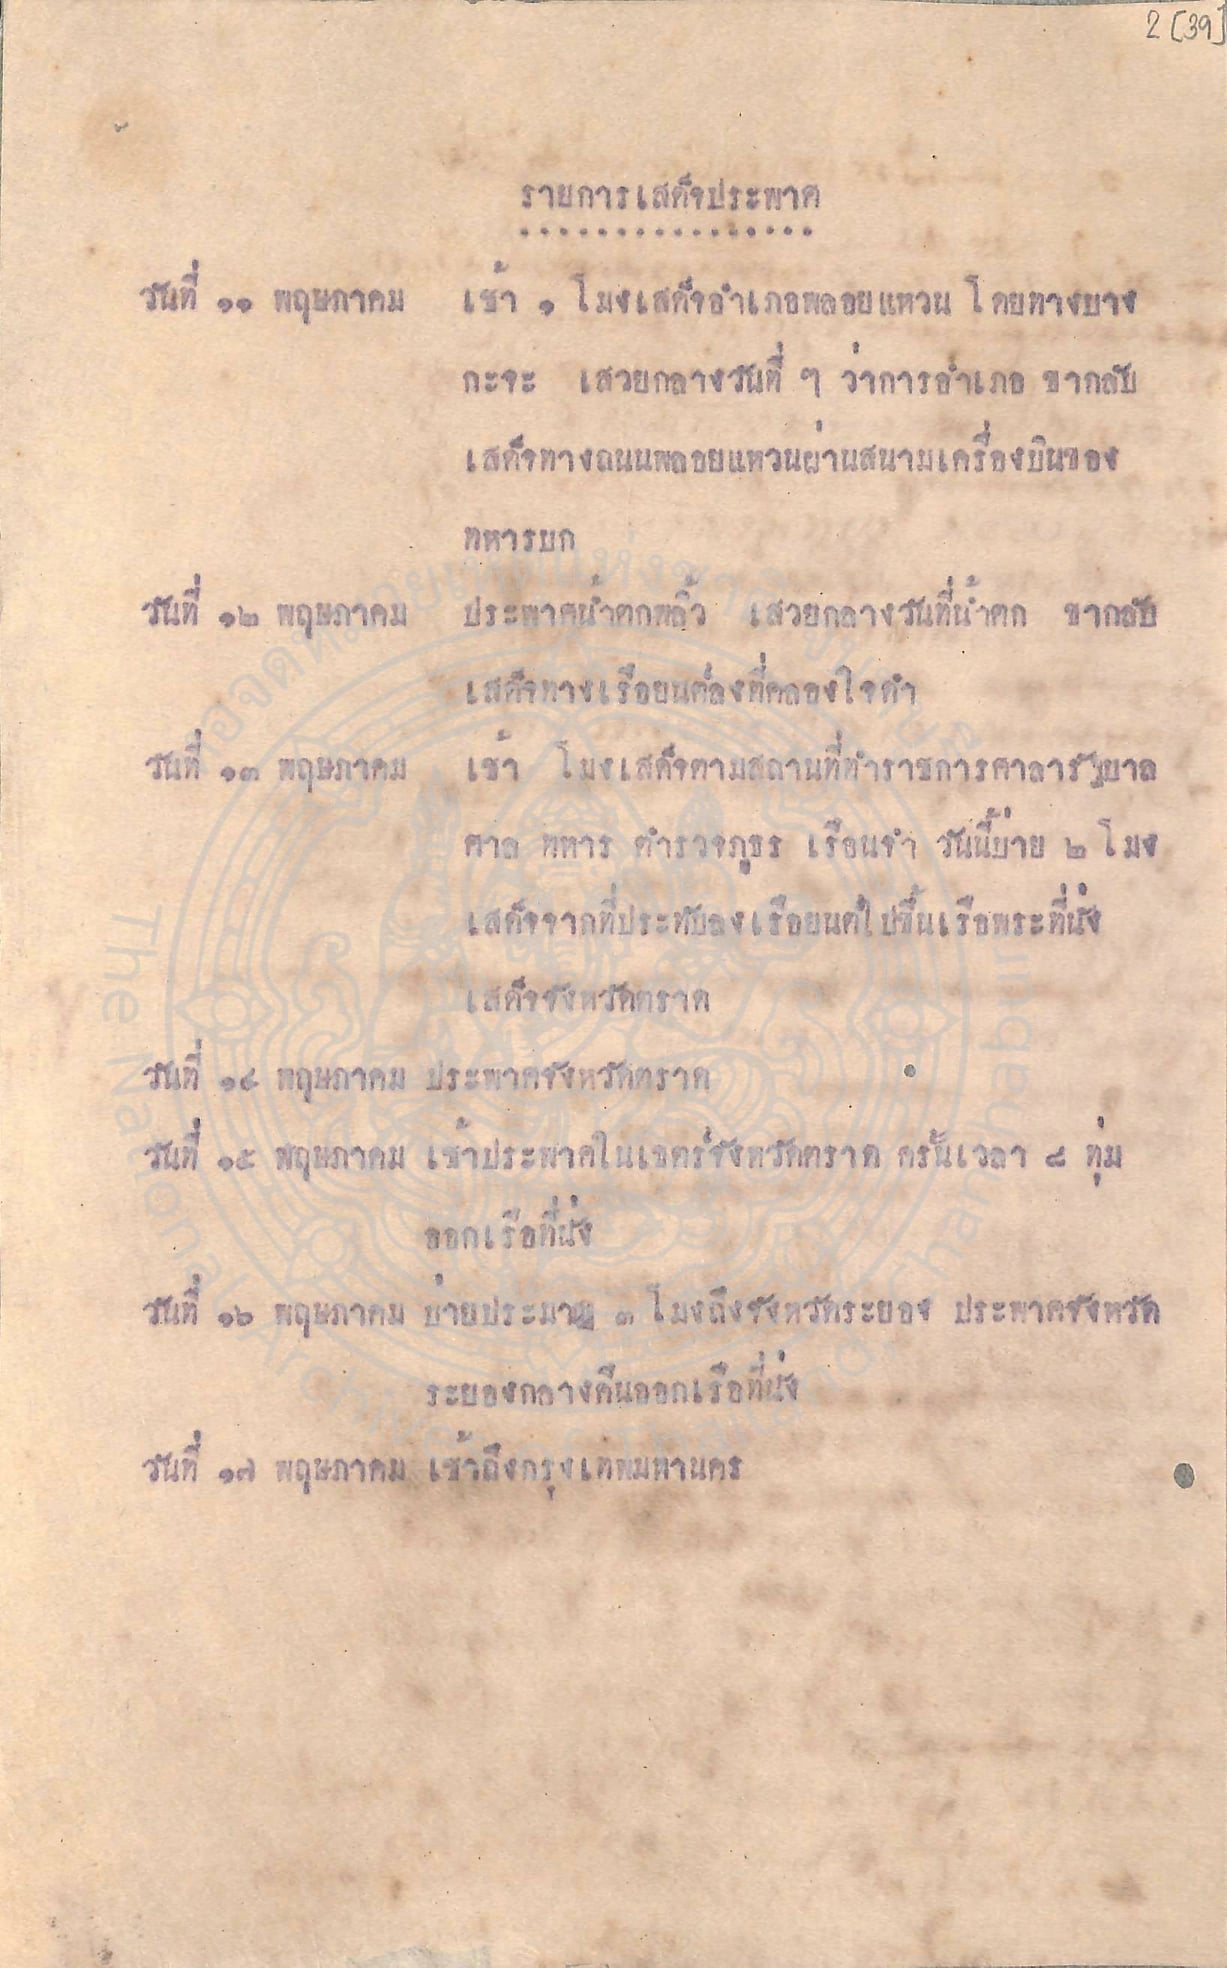 2 [39]
รายการเสด็จประพาศ
วันที่ ๑๑ พฤษภาคม เช้า ๑ โมงเสด็จอำเภอพลอยแหวน โดยทางบาง
กะจะ เสวยกลางวันที่ ๆ ว่าการอำเภอ ขากลับ
เสด็จทางถนนพลอยแหวนผ่านสนามเครื่องบินของ
ทหารบก
วันที่ ๑๒ พฤษภาคม ประพาศน้ำตกพลิ้ว เสวยกลางวันที่น้ำตก ขากลับ
เสด็จทางเรือยนต์ลงที่คลองใจดำ
วันที่ ๑๓ พฤษภาคม เช้า โมงเสด็จตามสถานที่ทำราชการศาลารัฐบาล
ศาล ทหาร ตำรวจภูธร เรือนจำ วันนี้บ่าย ๒ โมง
เสด็จจากที่ประทับลงเรือยนต์ไปขึ้นเรือพระที่นั่ง
เสด็จจังหวัดตราด
วันที่ ๑๔ พฤษภาคม ประพาศจังหวัดตราด
วันที่ ๑๕ พฤษภาคม เช้าประพาศในเขตร์จังหวัดตราด ครั้นเวลา ๘ ทุ่ม
ออกเรือที่นั่ง
วันที่ ๑๖ พฤษภาคม บ่ายประมาณ ๓ โมงถึงจังหวัดระยอง ประพาศจังหวัด
ระยองกลางคืนออกเรือที่นั่ง
วันที่ ๑๗ พฤษภาคม เช้าถึงกรุงเทพมหานคร
หอจดหมายเหตุแห่งชาติ
The National Archives of Thailand